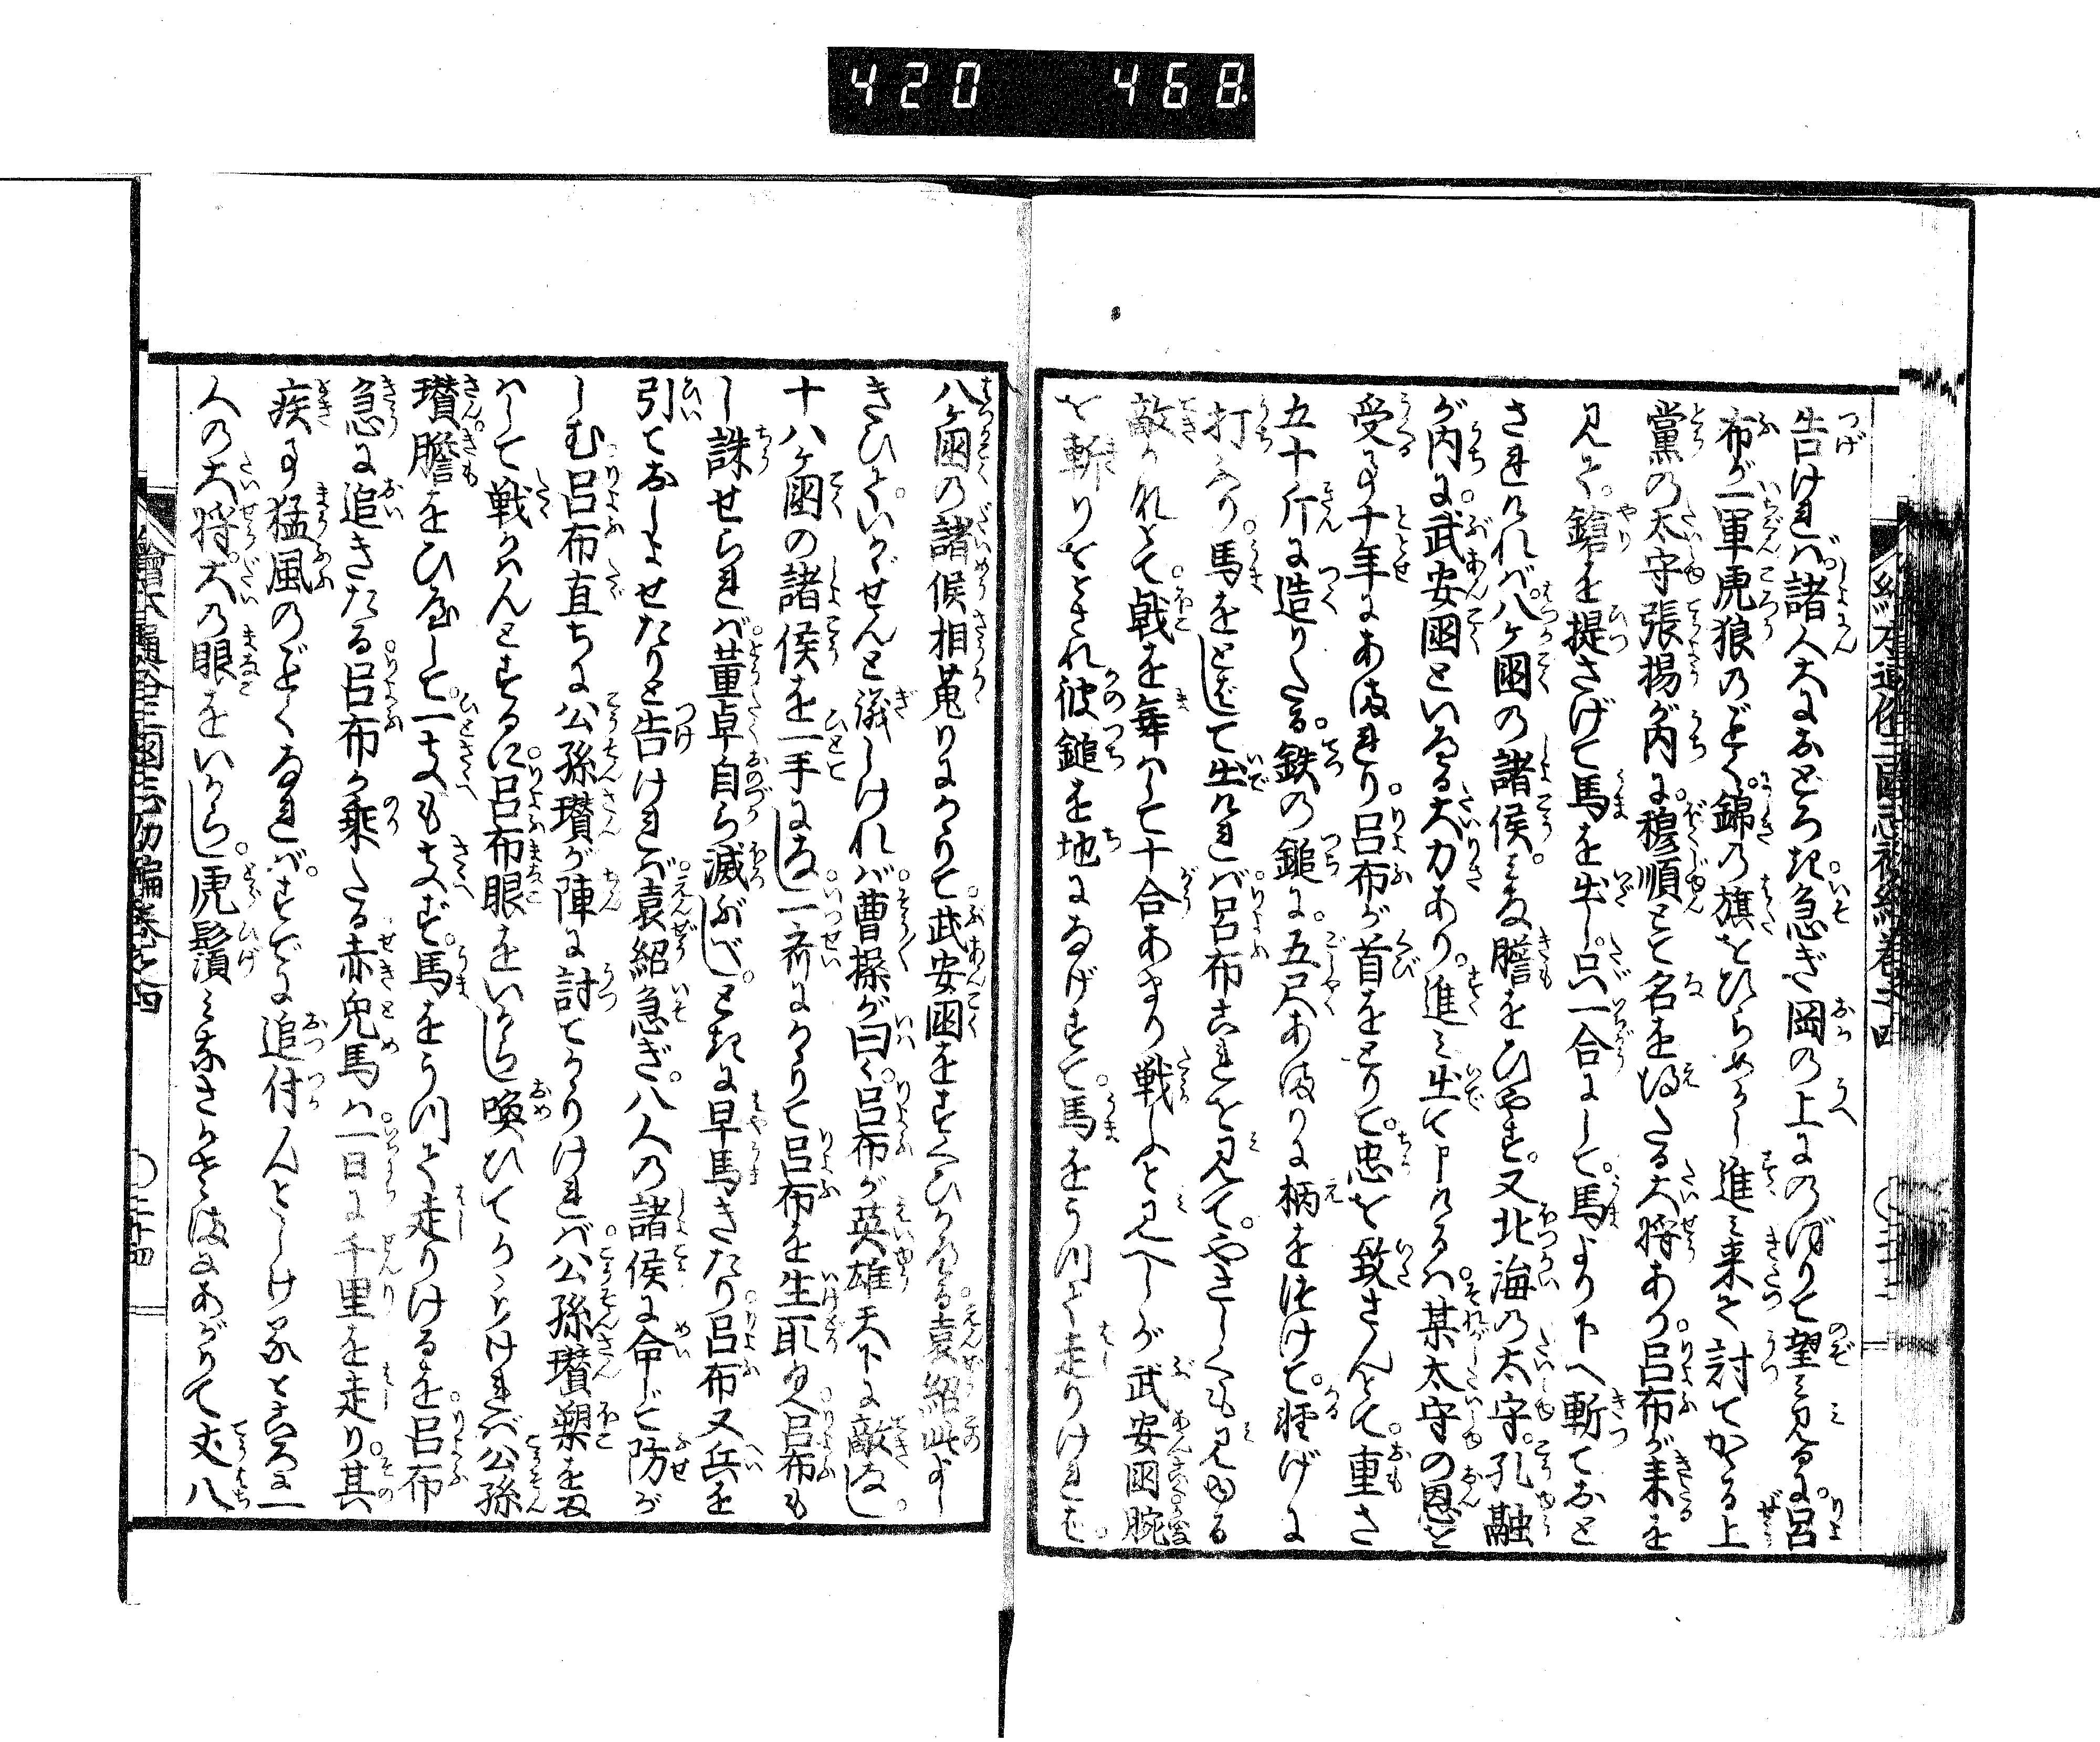 420 468
告けれバ諸人大におどろき急ぎ岡の上にのぼりて望ミ見るに呂
布が一軍虎狼のごとく錦の旗をひらめかし進ミ来て討てかゝる上
黨の太守張揚が内に穆順とて名を得たる大将あり呂布が来を
見て鎗を提さげて馬を出し只一合にして馬より下へ斬ておと
されけれバ八ケ国の諸侯ミな膽をひやす又北海の太守孔融
が内に武安国といへる大力あり進ミ出て申けるハ某太守の恩を
受る事十年にあまれり呂布が首をとりて忠を致さんとて重さ
五十斤に造りたる鉄の鎚に五尺あまりに柄をつけて軽げに
打ふり馬をとばして出けれバ呂布これを見てやさしくも見ゆる
敵かなとて戟を舞ハして十合あまり戦ふと見へしが武安国腕
を斬りをとされ彼鎚を地になげすて馬をかへして走りけれバ
八ケ国の諸侯相蒐りにかゝりて武安国をすくひかへる袁紹此よし
きひていかゞせんと議しけれバ曹操が曰く呂布が英雄天下に敵なし
十八ケ国の諸侯を一手になし一斉にかゝりて呂布を生取べし呂布も
し誅せられバ董卓自ら滅ぶべしとき に早馬きたり呂布又兵を
引ておしよせたりと告けれバ袁紹急ぎ八人の諸侯に命じて防が
しむ呂布直ちに公孫瓚が陣に討てかゝりけれバ公孫瓚槊をま
ハして戦かハんとするに呂布眼をいからし喚ひてかゝりけれバ公孫
瓚膽をひやして一支も支ず馬をかへして走りけるを呂布
急に追きたる呂布が乗たる赤兎馬ハ一日に千里を走り其
疾事猛風のごとくなれバすでに追付んとしける ところに一
人の大将大の眼をいからし虎鬚ミなさかさまにあがりて丈八
繪本通俗三國志初編巻之四
二十四